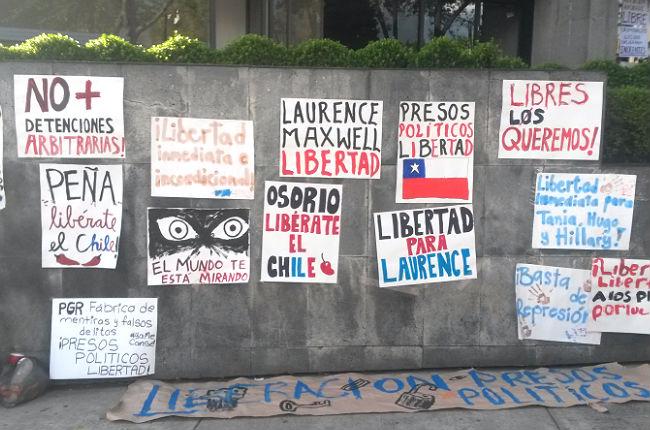 NO +
DETENCIONES
ARBITRARIAS!
¡Libertad
inmediata e
incondicional!
LAURENCE
MAXWELL
LIBERTAD
PRESOS
POLÍTICOS
LIBERTAD
LIBRES
LOS
QUEREMOS!
PEÑA
libérate
el Chile!
EL MUNDO TE
ESTÁ MIRANDO
OSORIO
LIBÉRATE
EL
CHILE
LIBERTAD
PARA
LAURENCE
Libertad
inmediata para
Tania, Hugo
y Hillary!
PGR Fábrica de
mentiras y falsos
delitos
¡PRESOS
POLÍTICOS
LIBERTAD!
¡Basta
de
Represión!
A LOS
LIBERACION - PRESOS
POLITICOS
LIBRE